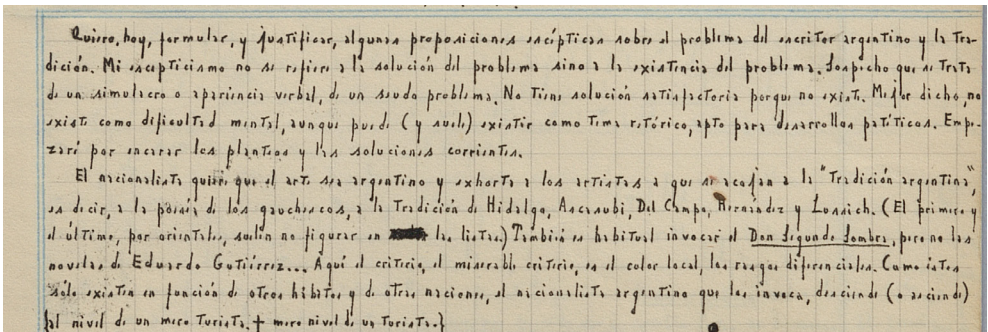 Quiero, hoy, formular, y justificar, algunas proposiciones escépticas sobre el problema del escritor argentino y la tra-
dición. Mi escepticismo no se refiere a la solución del problema sino a la existencia del problema. Sospecho que se trata
de un simulacro o apariencia verbal, de un seudo problema. No tiene solución satisfactoria porque no existe. Mejor dicho, no
existe como dificultad mental, aunque puede (y suele) existir como tema retórico, apto para desarrollos patéticos. Empe-
zaré por encarar los planteos y las soluciones corrientes.
El nacionalista quiere que el arte sea argentino y exhorta a los artistas a que se acojan a la "tradición argentina",
es decir, a la poesía de los gauchescos, a la tradición de Hidalgo, Ascasubi, Del Campo, Hernández y Lussich. (El primero y
el último, por orientales, suelen no figurar en las listas.) También es habitual invocar el Don Segundo Sombra, pero no las
novelas de Eduardo Gutiérrez... Aquí el criterio, el miserable criterio, es el color local, los rasgos diferenciales. Como éstos
sólo existen en función de otros hábitos y de otras naciones, el nacionalista argentino que los invoca, desciende (o asciende)
{al nivel de un mero turista. † mero nivel de un turista.}